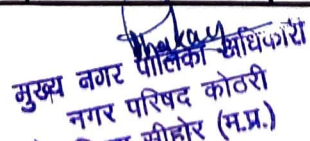 मुख्य नगर पालिका अधिकारी
नगर परिषद कोठरी
सीहोर (म.प्र.)